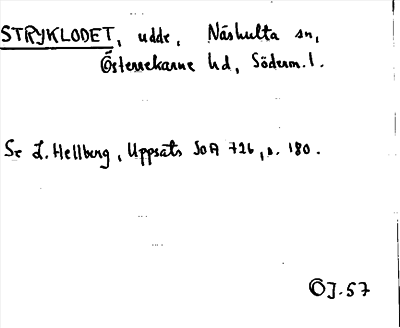 STRYKLODET, udde, Näshulta sn,
Österrekarne hd, Söderm. l.
Se L. Hellberg, Uppsats SOA 726, s. 180.
ÖJ. 57